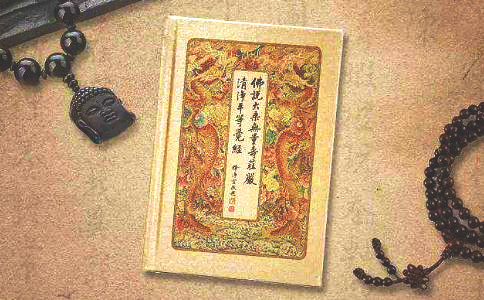 佛說大乘無量壽莊嚴
清淨平等覺經